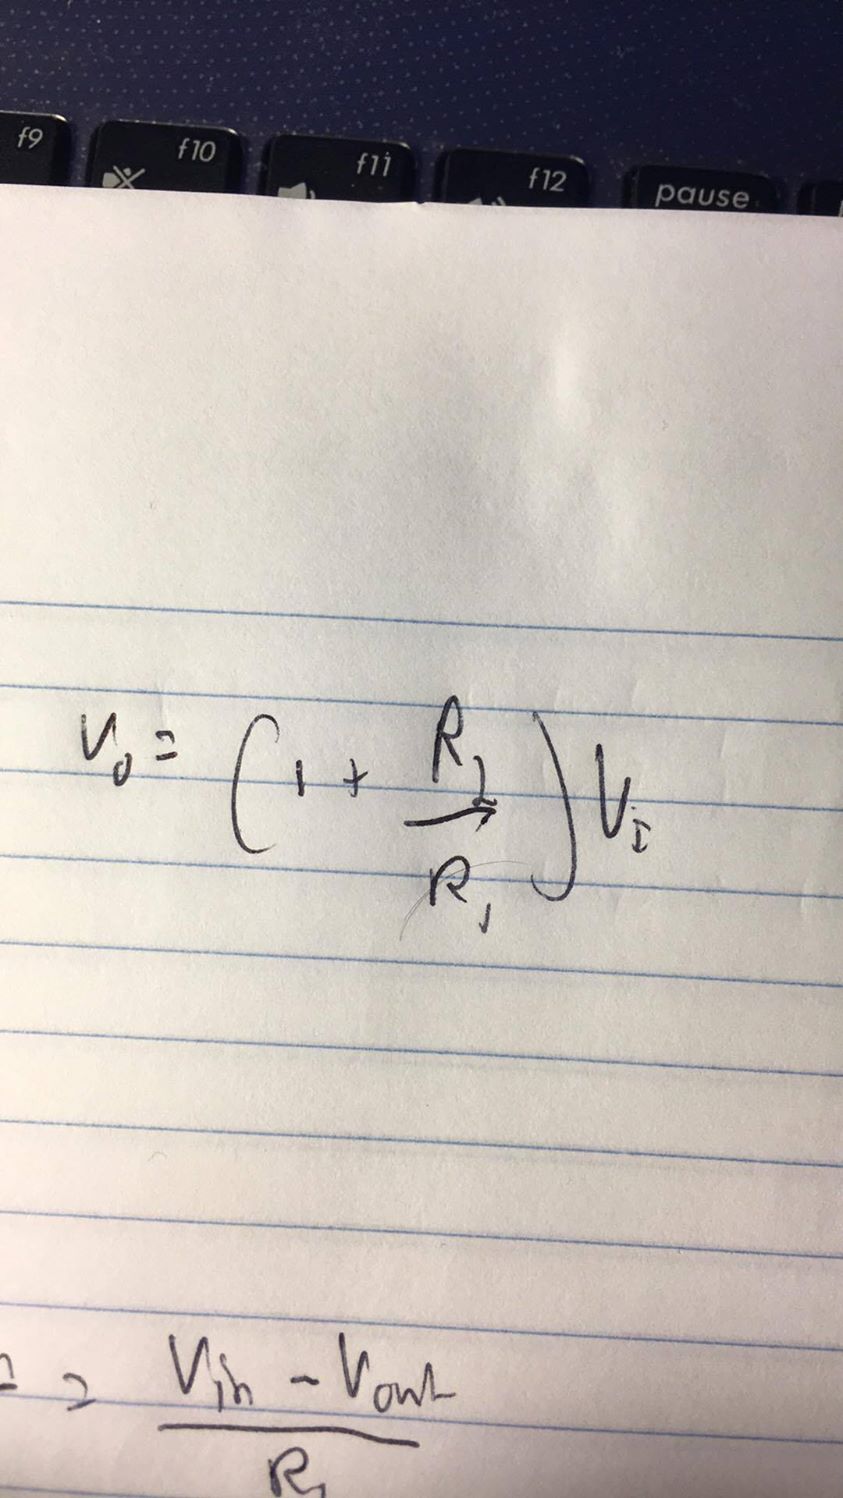 f9 f10 f11 f12 pause
V₀ = (1 + R₂/R₁) Vᵢ
= Vin - Vout
R₁